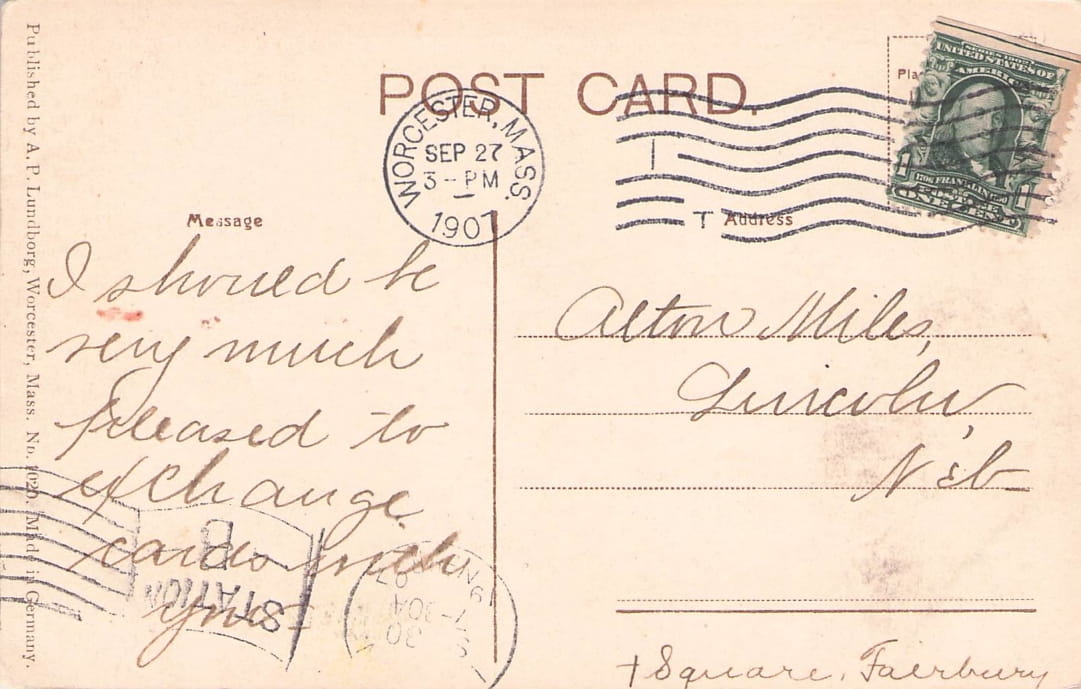 POST CARD.
WORCESTER, MASS.
SEP 27
3-PM
1907
SERIES 1902
UNITED STATES OF
AMERICA
1706 FRANKLIN 1790
1 1
ONE CENT
Message
Address
I should be
very much
pleased to
exchange
cards with
you
Alton Miles,
Lincoln,
Neb
STATION
Square, Fairbury
Published by A. P. Lundborg, Worcester, Mass. No. Made in Germany.